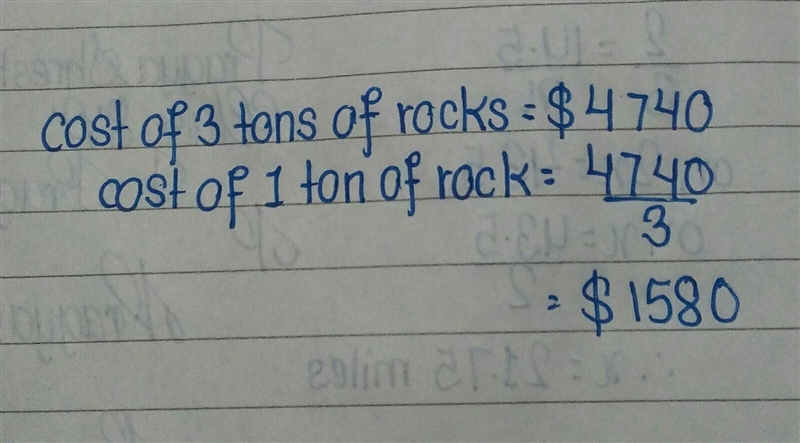 cost of 3 tons of rocks = $4740
cost of 1 ton of rock = 4740
3
= $1580
∴ x = 21.75 miles